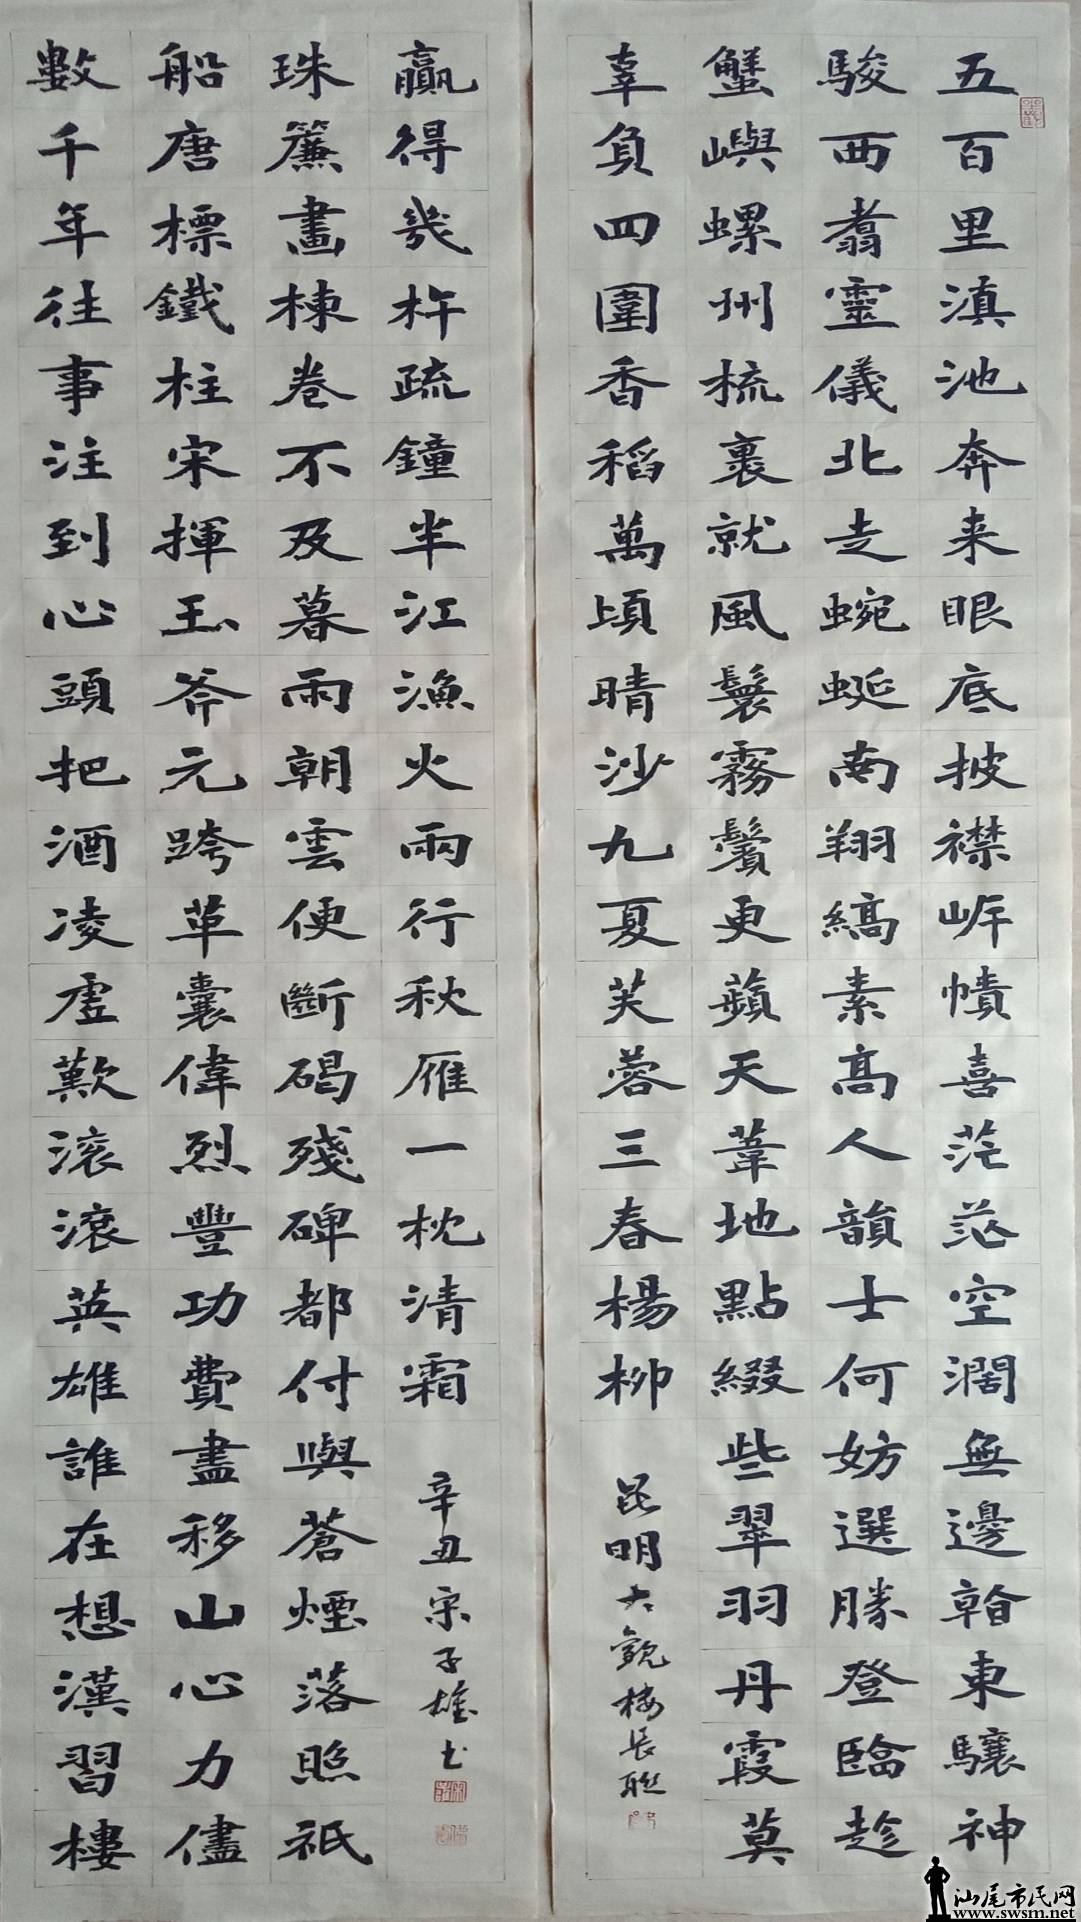 五百里滇池奔来眼底披襟岸幘喜茫茫空闊無邊看東驤神
駿西翥靈儀北走蜿蜒南翔縞素高人韻士何妨選勝登臨趁
蟹嶼螺州梳裹就風鬟霧鬢更蘋天葦地點綴些翠羽丹霞莫
辜負四圍香稻萬頃晴沙九夏芙蓉三春楊柳
昆明大觀楼長联
數千年往事注到心頭把酒凌虛歎滚滾英雄誰在想漢習樓
船唐標鐵柱宋揮玉斧元跨革囊偉烈豐功費盡移山心力儘
珠簾畫棟卷不及暮雨朝雲便斷碣殘碑都付與蒼煙落照祇
贏得幾杵疏鐘半江漁火兩行秋雁一枕清霜
辛丑宋子雄书
汕尾市民网
www.swsm.net